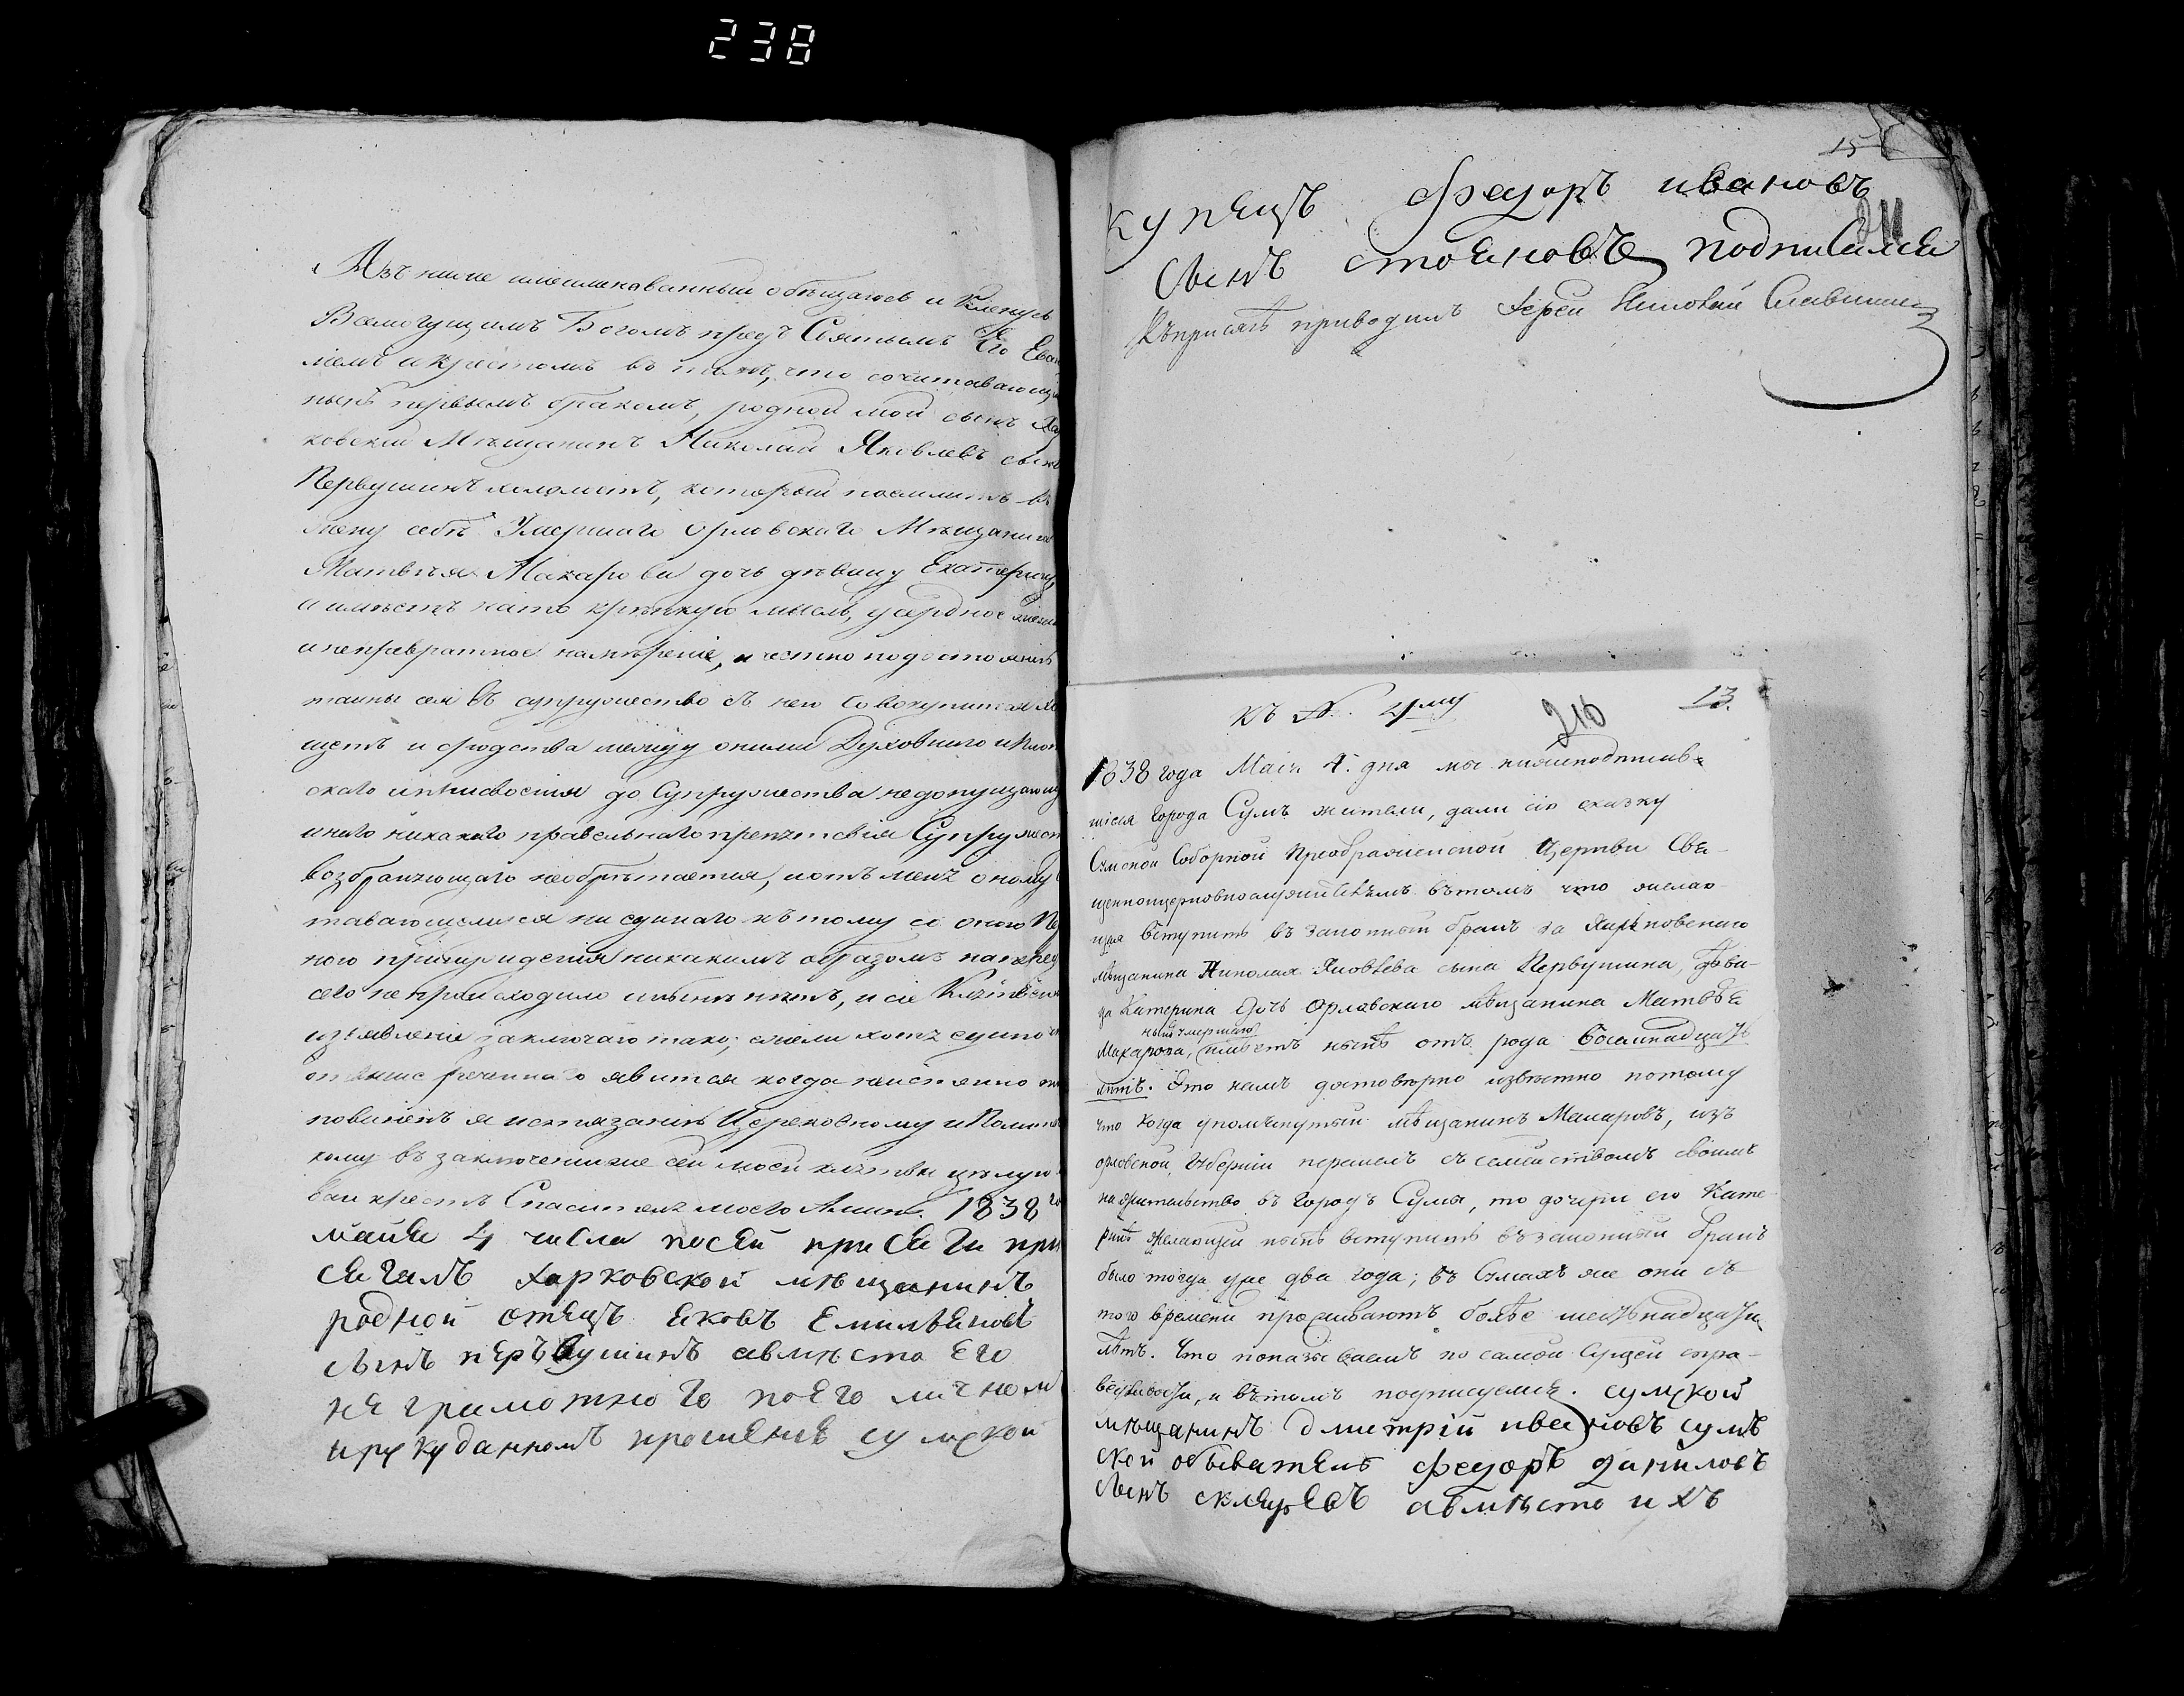 238
Азъ ниже именованный обѣщаюсь и кленусь
Всемогущимъ Богомъ предъ Святымъ Его Еван
ліемъ и крестомъ въ томъ, что сочитавающи
нынѣ первымъ бракомъ, родной мой сынъ Хар
ковский Мѣщанинъ Николай Яковлевъ сынъ
Первушинъ холостъ, который поемлитъ въ
жену себѣ Умершаго Орловскаго Мѣщанина
Матвѣя Макарова дочь дѣвицу Екатерину,
а имѣетъ на то крѣпкую мысль, усердное
и непревратное намѣреніе, и честно по достоянію
тайны сея въ супружество съ нею совокупится
щетъ и сродства между оными Духовнаго и Плот
скаго и присвоенія до Супружества недопущающ
инаго никакаго правельнаго препятствія Супружест
возбраняющаго необрѣтается, и отъ меня оному
тавающемуся ни единаго къ тому со онаго
ного принужденія никакимъ образомъ на передъ
сего не происходило и нынѣ нѣтъ, и сіе Клятвен
изъявленіе заключаю тако; ежели хотя едино
отъ выше реченнаго явится когда неистенно
повиненъ я истязанію Церковному и Полити
кому въ заключеніи же сей моей клятвы цѣлую
Еван крестъ Спасителя моего Аминь. 1838 го
майя 4 числа посей присяги при
сягалъ харковской мѣщанинъ
родной отецъ яковъ Емильяновъ
сынъ перъвушинъ авместо Его
не грамотного поего личном
ируку данномъ прошеніе сумской
15
купецъ федоръ ивановъ
211
сынъ стояновъ подписался
Къ присягѣ приводилъ Іерей Николай
къ №. 21му
210
13.
1838 года Маія 4. дня мы нижеподписав-
шіеся города Сумъ жители, дали сію сказку
Сумской Соборной Преображенской Церкви Свя-
щенноцерковнослужителямъ въ томъ что желаю-
щая вступить въ законный бракъ за Харьковскаго
мѣщанина Николая Яковлева сына Первушина, дѣви-
ца Катерина дочь Орловскаго мѣщанина Матвѣя
нынѣ умершаго
Макарова, имѣетъ нынѣ отъ рода восемнадцать
лѣтъ. Это намъ достовѣрно извѣстно потому
что когда упомянутый мѣщанинъ Макаровъ, изъ
орловской Губерніи перешелъ съ семействомъ своимъ
на жительство въ городъ Сумы, то дочери его Кате
ринѣ желающей нынѣ вступить въ законный бракъ
было тогда уже два года; въ Сумахъ же они съ
того времени проживаютъ болѣе шестьнадцати
лѣтъ. Что показываемъ по самой сущей спра-
ведливости, и въ томъ подписуемся. сумской
мѣщанинъ дмитрій ивановъ сумъ
ской обыватель федоръ даниловъ
сынъ скляревъ авмѣсто ихъ